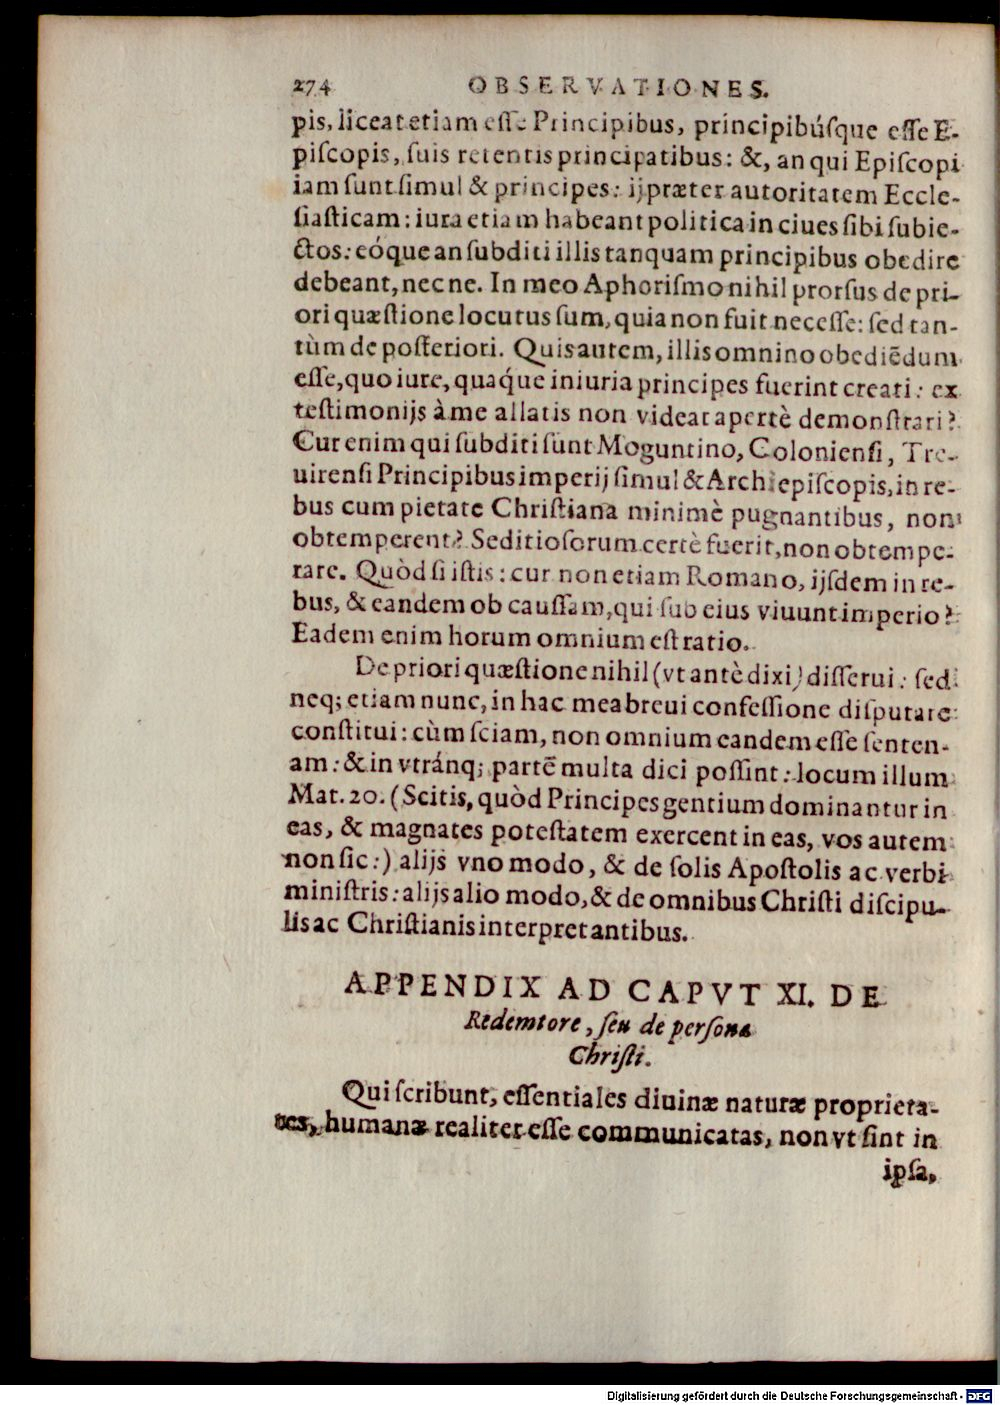 274 OBSERVATIONES.
pis, liceat etiam esse Principibus, principibúsque esse E-
piscopis, suis retentis principatibus: &, an qui Episcopi
iam sunt simul & principes: ij præter autoritatem Eccle-
siasticam: iura etiam habeant politica in ciues sibi subie-
ctos: eóque an subditi illis tanquam principibus obedire
debeant, nec ne. In meo Aphorismo nihil prorsus de pri-
ori quæstione locutus sum, quia non fuit necesse: sed tan-
tùm de posteriori. Quis autem, illis omnino obediẽdum
esse, quo iure, quaq́ue iniuria principes fuerint creati: ex
testimonijs à me allatis non videat apertè demonstrari?
Cur enim qui subditi sunt Moguntino, Coloniensi, Tre-
uirensi Principibus imperij simul & Archiepiscopis, in re-
bus cum pietate Christiana minimè pugnantibus, non
obtemperent? Seditiosorum certè fuerit, non obtempe-
rare. Quòd si istis: cur non etiam Romano, ijsdem in re-
bus, & eandem ob caussam, qui sub eius viuunt imperio?
Eadem enim horum omnium est ratio.
De priori quæstione nihil (vt antè dixi) disserui: sed
neq; etiam nunc, in hac mea breui confessione disputare
constitui: cùm sciam, non omnium eandem esse senten-
am: & in vtránq; partẽ multa dici possint: locum illum
Mat. 20. (Scitis, quòd Principes gentium dominantur in
eas, & magnates potestatem exercent in eas, vos autem
non sic:) alijs vno modo, & de solis Apostolis ac verbi
ministris: alijs alio modo, & de omnibus Christi discipu-
lis ac Christianis interpretantibus.
APPENDIX AD CAPVT XI. DE
Redemtore, seu de persona
Christi.
Qui scribunt, essentiales diuinæ naturæ proprieta-
tes, humanæ realiter esse communicatas, non vt sint in
ipsa,
Digitalisierung gefördert durch die Deutsche Forschungsgemeinschaft - DFG